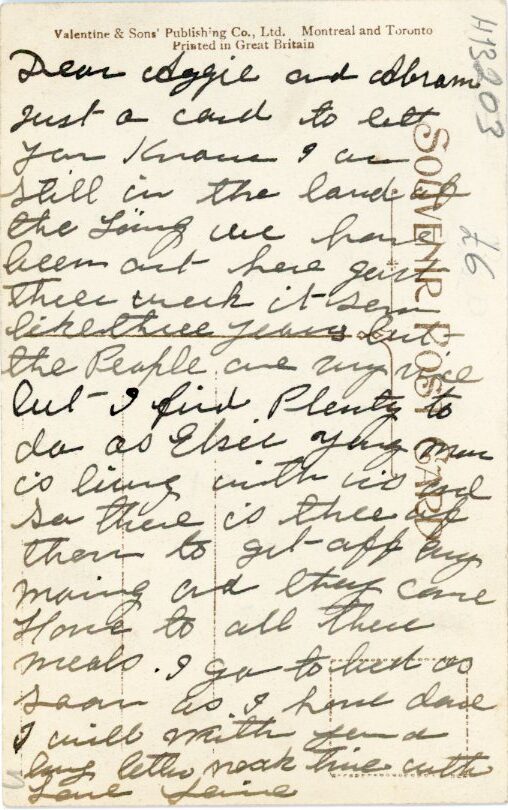 Valentine & Sons' Publishing Co., Ltd. Montreal and Toronto
Printed in Great Britain
Dear Aggie and Abram
just a card to lett
you Know I am
still in the land of
the Living we have
been out here
three week it seem
like three years but
the People are very nice
but I find Plenty to
do as Elsei young man
is living with us and
so there is three of
them to get off
morning and they come
Home to all there
meals. I go to bed as
soon as I have done
I will you a
long letter next time with
Love
SOUVENIR POST CARD
H3203
£6